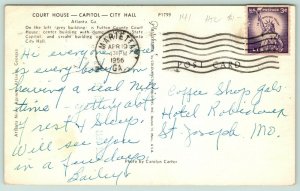 COURT HOUSE — CAPITOL — CITY HALL
Atlanta, Ga.
On the left (grey building) is Fulton County Court
House; center building with dome is State
Capitol; and
City Hall.
P17799
MARIETTA
APR 19
PM
1956
GA.
U.S. POSTAGE 3¢
POST CARD
Hi everyone
is everybody
having a real nice
time! getting lots
rest & sleep.
Will see you
in a few days.
Bailey
Coffee Shop gals
Hotel Robidoux
St Joseph Mo.
Photo by Carolyn Carter